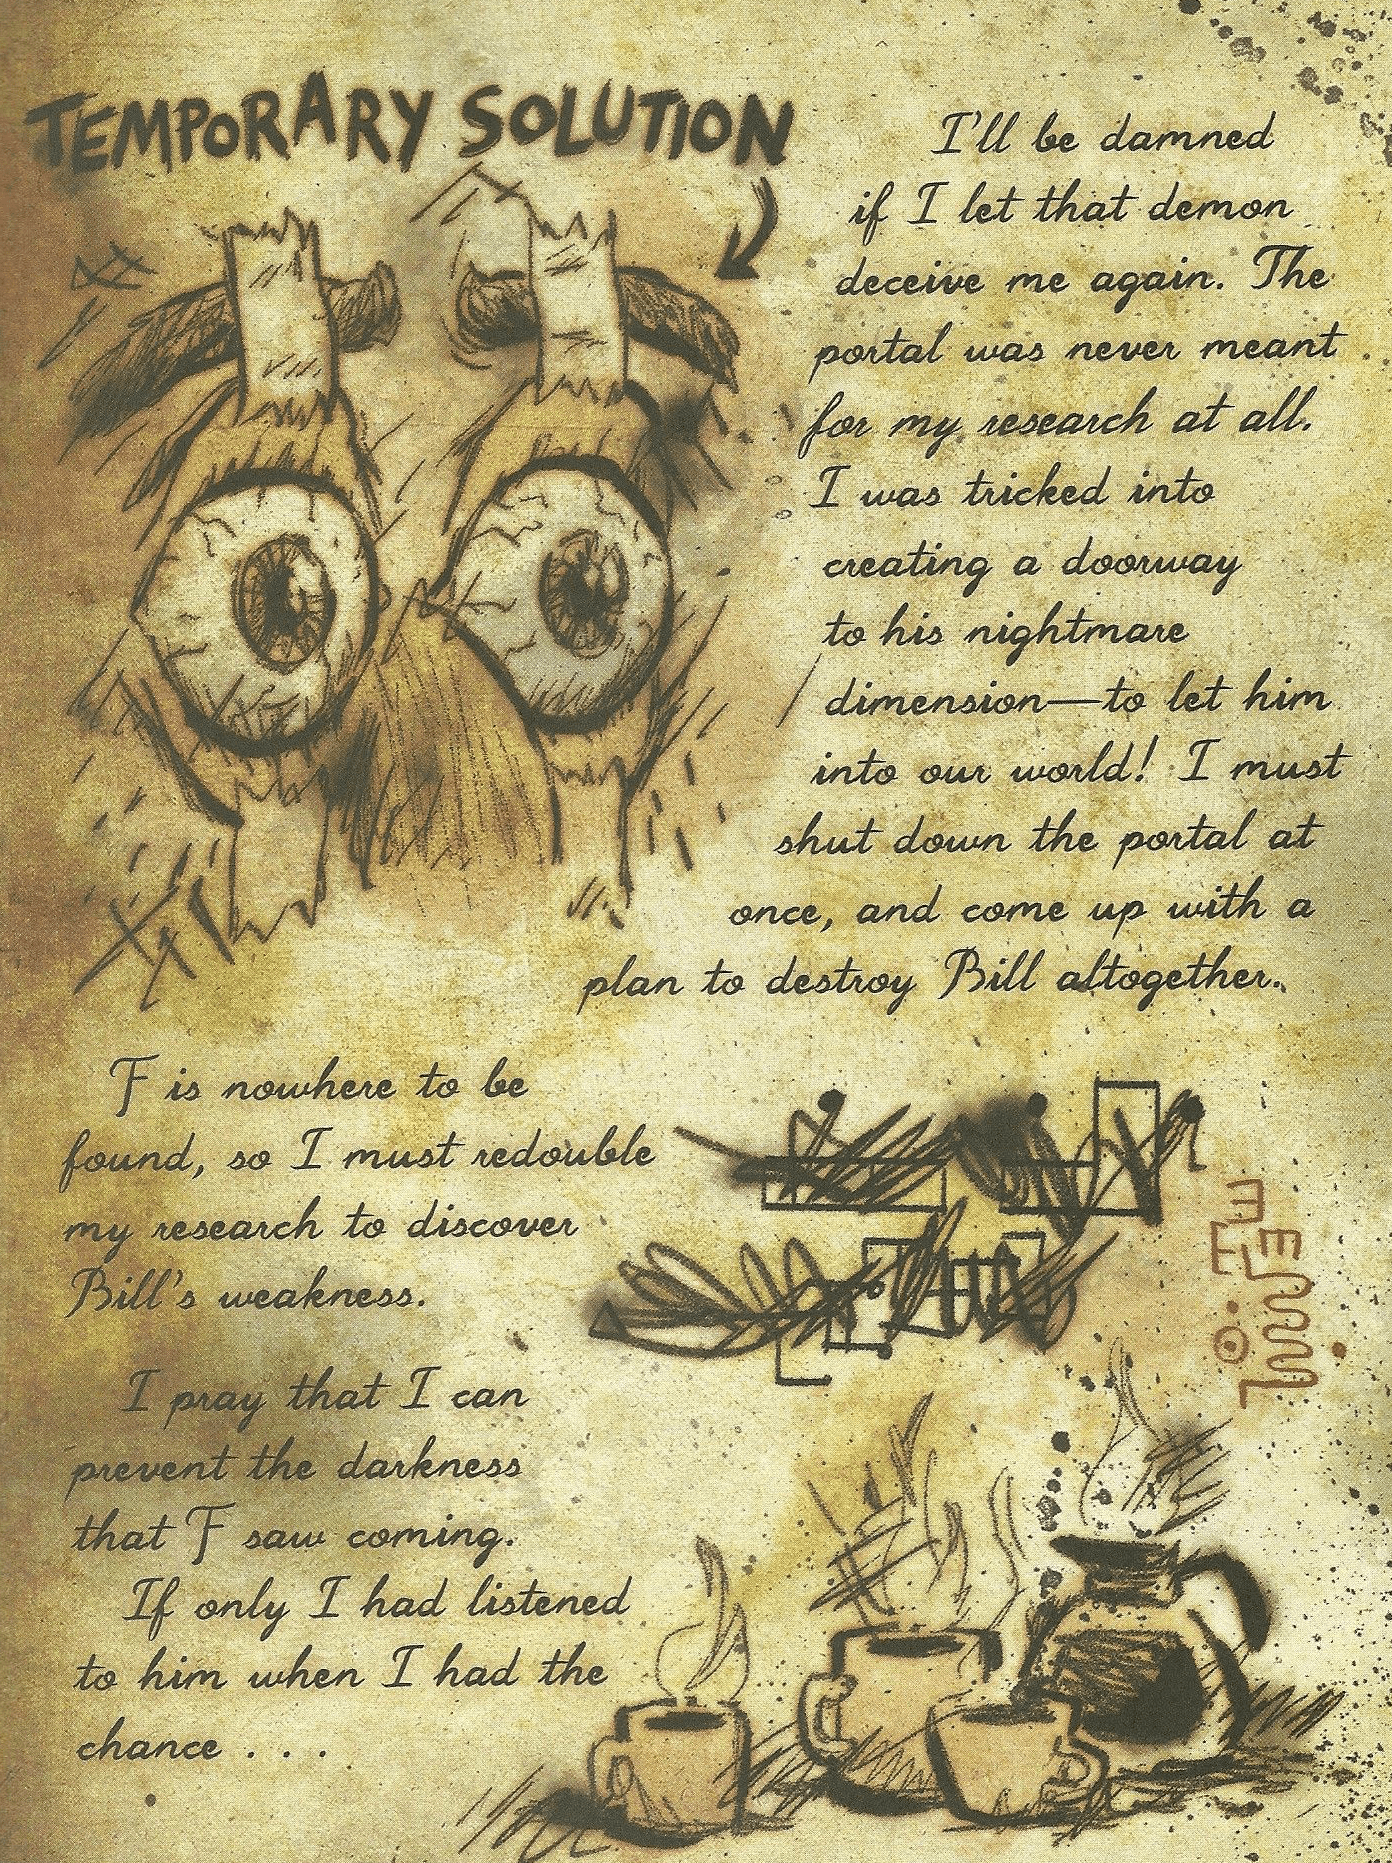 TEMPORARY SOLUTION
I'll be damned
if I let that demon
deceive me again. The
portal was never meant
for my research at all.
I was tricked into
creating a doorway
to his nightmare
dimension—to let him
into our world! I must
shut down the portal at
once, and come up with a
plan to destroy Bill altogether.
F is nowhere to be
found, so I must redouble
my research to discover
Bill's weakness.
I pray that I can
prevent the darkness
that F saw coming.
If only I had listened
to him when I had the
chance . . .